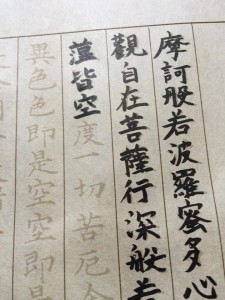 摩訶般若波羅蜜多心
觀自在菩薩行深般若
蘊皆空度一切苦厄舍
異色色即是空空即是